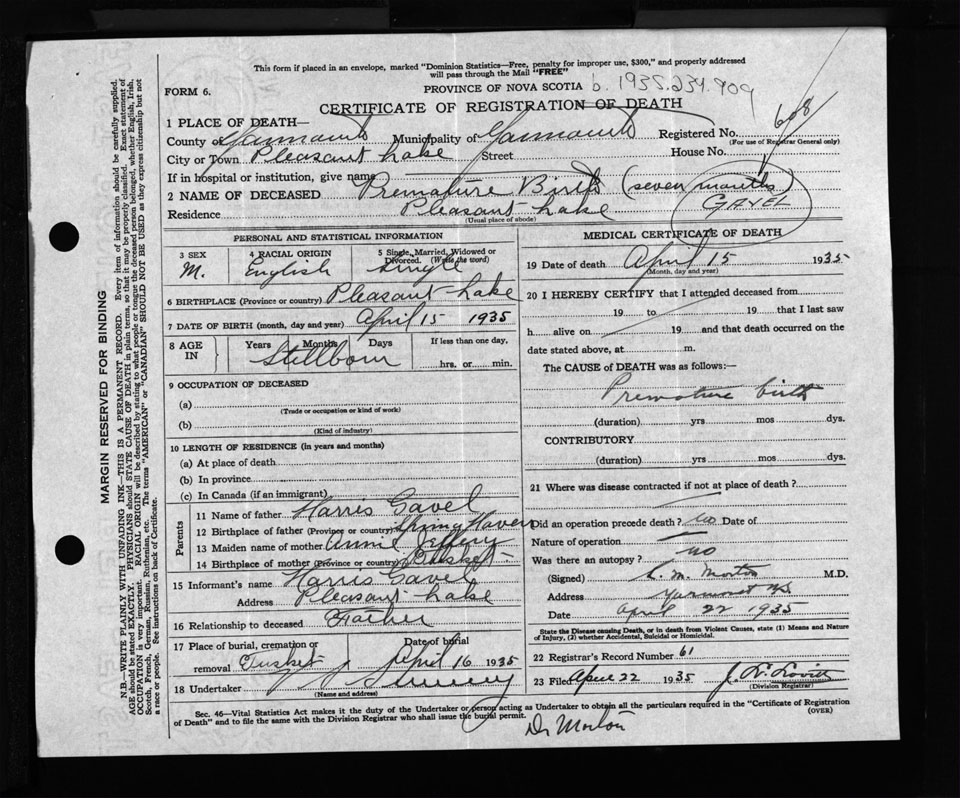 This form if placed in an envelope, marked "Dominion Statistics—Free, penalty for improper use, $300," and properly addressed
will pass through the Mail "FREE"
FORM 6. PROVINCE OF NOVA SCOTIA b. 1935.234.909
CERTIFICATE OF REGISTRATION OF DEATH
608
1 PLACE OF DEATH—
County of Yarmouth Municipality of Yarmouth Registered No.
(For use of Registrar General only)
City or Town Pleasant Lake Street House No.
If in hospital or institution, give name
2 NAME OF DECEASED Premature Birth (seven months)
GAVEL
Residence Pleasant Lake
(Usual place of abode)
PERSONAL AND STATISTICAL INFORMATION
3 SEX 4 RACIAL ORIGIN 5 Single, Married, Widowed or Divorced. (Write the word)
M. English Single
6 BIRTHPLACE (Province or country) Pleasant Lake
7 DATE OF BIRTH (month, day and year) April 15 1935
8 AGE IN Years Months Days If less than one day,
Stillborn hrs. or min.
9 OCCUPATION OF DECEASED
(a)
(Trade or occupation or kind of work)
(b)
(Kind of industry)
10 LENGTH OF RESIDENCE (in years and months)
(a) At place of death
(b) In province
(c) In Canada (if an immigrant)
Parents
11 Name of father Harris Gavel
12 Birthplace of father (Province or country) Spring Haven
13 Maiden name of mother Annie Jeffery
14 Birthplace of mother (Province or country) Tusket
15 Informant's name Harris Gavel
Address Pleasant Lake
16 Relationship to deceased Father
17 Place of burial, cremation or removal Tusket Date of burial April 16 1935
18 Undertaker
(Name and address)
MEDICAL CERTIFICATE OF DEATH
19 Date of death April 15 1935
(Month, day and year)
20 I HEREBY CERTIFY that I attended deceased from
19 to 19 that I last saw
h alive on 19 and that death occurred on the
date stated above, at m.
The CAUSE of DEATH was as follows:—
Premature birth
(duration) yrs mos dys.
CONTRIBUTORY
(duration) yrs mos dys.
21 Where was disease contracted if not at place of death?
Did an operation precede death? no Date of
Nature of operation
Was there an autopsy? no
(Signed) Morton M.D.
Address Yarmouth NS
Date April 22 1935
State the Disease causing Death, or in death from Violent Causes, state (1) Means and Nature
of Injury, (2) whether Accidental, Suicidal or Homicidal.
22 Registrar's Record Number 61
23 Filed April 22 1935
(Division Registrar)
Sec. 46—Vital Statistics Act makes it the duty of the Undertaker or person acting as Undertaker to obtain all the particulars required in the "Certificate of Registration
of Death" and to file the same with the Division Registrar who shall issue the burial permit. (OVER)
Dr Morton
MARGIN RESERVED FOR BINDING
N.B.—WRITE PLAINLY WITH UNFADING INK—THIS IS A PERMANENT RECORD. Every item of information should be carefully supplied.
AGE should be stated EXACTLY. PHYSICIANS should STATE CAUSE OF DEATH in plain terms, so that it may be properly classified. Exact statement of
OCCUPATION is very important. RACIAL ORIGIN will be described by stating to what people or tongue the deceased person belonged, whether English, Irish,
Scotch, French, German, Russian, Ruthenian, etc. The terms "AMERICAN" or "CANADIAN" SHOULD NOT BE USED as they express citizenship but not
a race or people. See instructions on back of Certificate.